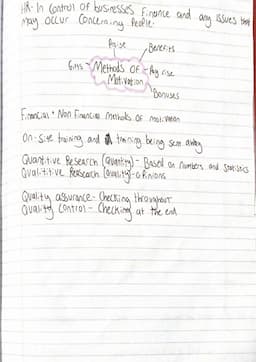 HR- In Control of businesses Finance and any issues that
may occur Concerning People.
Praise
Benefits
Gifts
Methods OF
Motivation
Pay rise
Bonuses
Financial + Non Financial methods of motivation
On-Site training and training being sent away
Quantitive Research (Quantity) - Based on numbers and statistics
Qualititive Research (Quality) - opinions
Quality assurance - Checking throughout
Quality Control - Checking at the end.